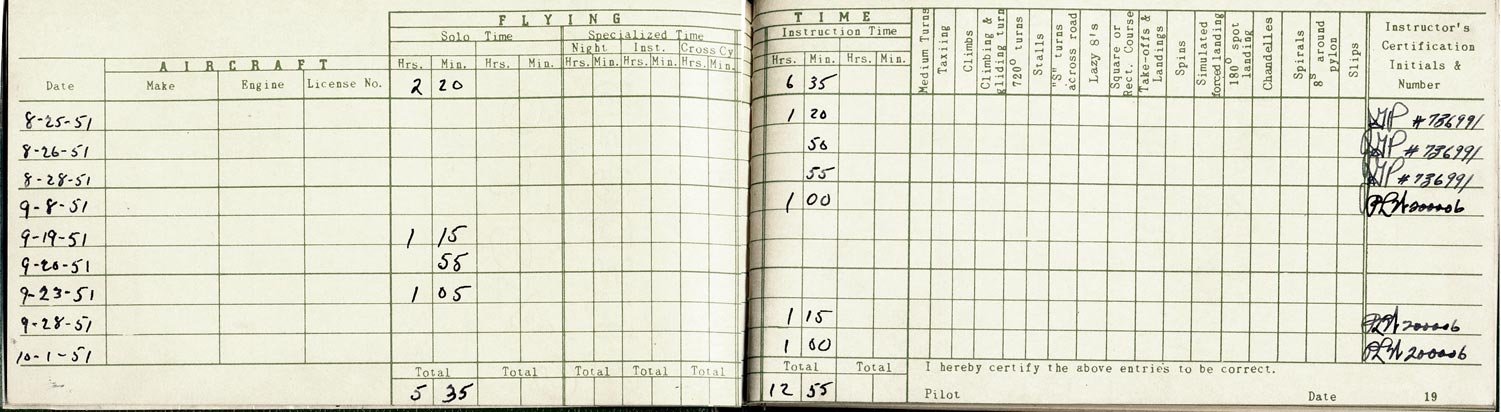 FLYING TIME
Solo Time Specialized Time Instruction Time
Night Inst. Cross Cy
AIRCRAFT Hrs. Min. Hrs. Min. Hrs. Min. Hrs. Min. Hrs. Min. Hrs. Min. Hrs. Min.
Medium Turns
Taxiing
Climbs
Climbing & gliding turn
720° turns
Stalls
"S" turns across road
Lazy 8's
Square or Rect. Course
Take-offs & Landings
Spins
Simulated forced landing
180° spot landing
Chandelles
Spirals
8s around pylon
Slips
Instructor's
Certification
Initials &
Number
Date Make Engine License No. 2 20 6 35
8-25-51 1 20 #736991
8-26-51 50 #736991
8-28-51 55 #736991
9-8-51 1 00 200006
9-19-51 1 15
9-20-51 55
9-23-51 1 05
9-28-51 1 15 200006
10-1-51 1 00 200006
Total Total Total Total Total Total Total I hereby certify the above entries to be correct.
5 35 12 55 Pilot Date 19